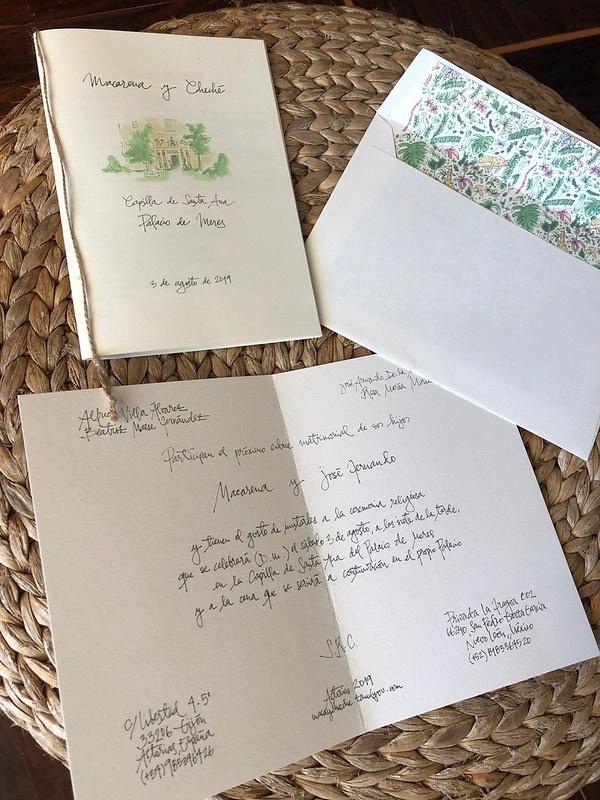 Macarena y Cheché
Capilla de Santa Ana
Palacio de Meres
3 de agosto de 2019
Alfredo Villa Álvarez
Beatriz Maese Fernández
José Armando De la
Blca María
Participan el próximo enlace matrimonial de sus hijos
Macarena y José Fernando
y tienen el gusto de invitarles a la ceremonia religiosa
que se celebrará (D.m.) el sábado 3 de agosto, a las siete de la tarde,
en la Capilla de Santa Ana del Palacio de Meres
y a la cena que se servirá a continuación en el propio Palacio
S.R.C.
Privada La
66240, San Pedro Garza García
Nuevo León, México
Asturias 2019
C/ Libertad 4-5º
33206 - Gijón
Asturias, España